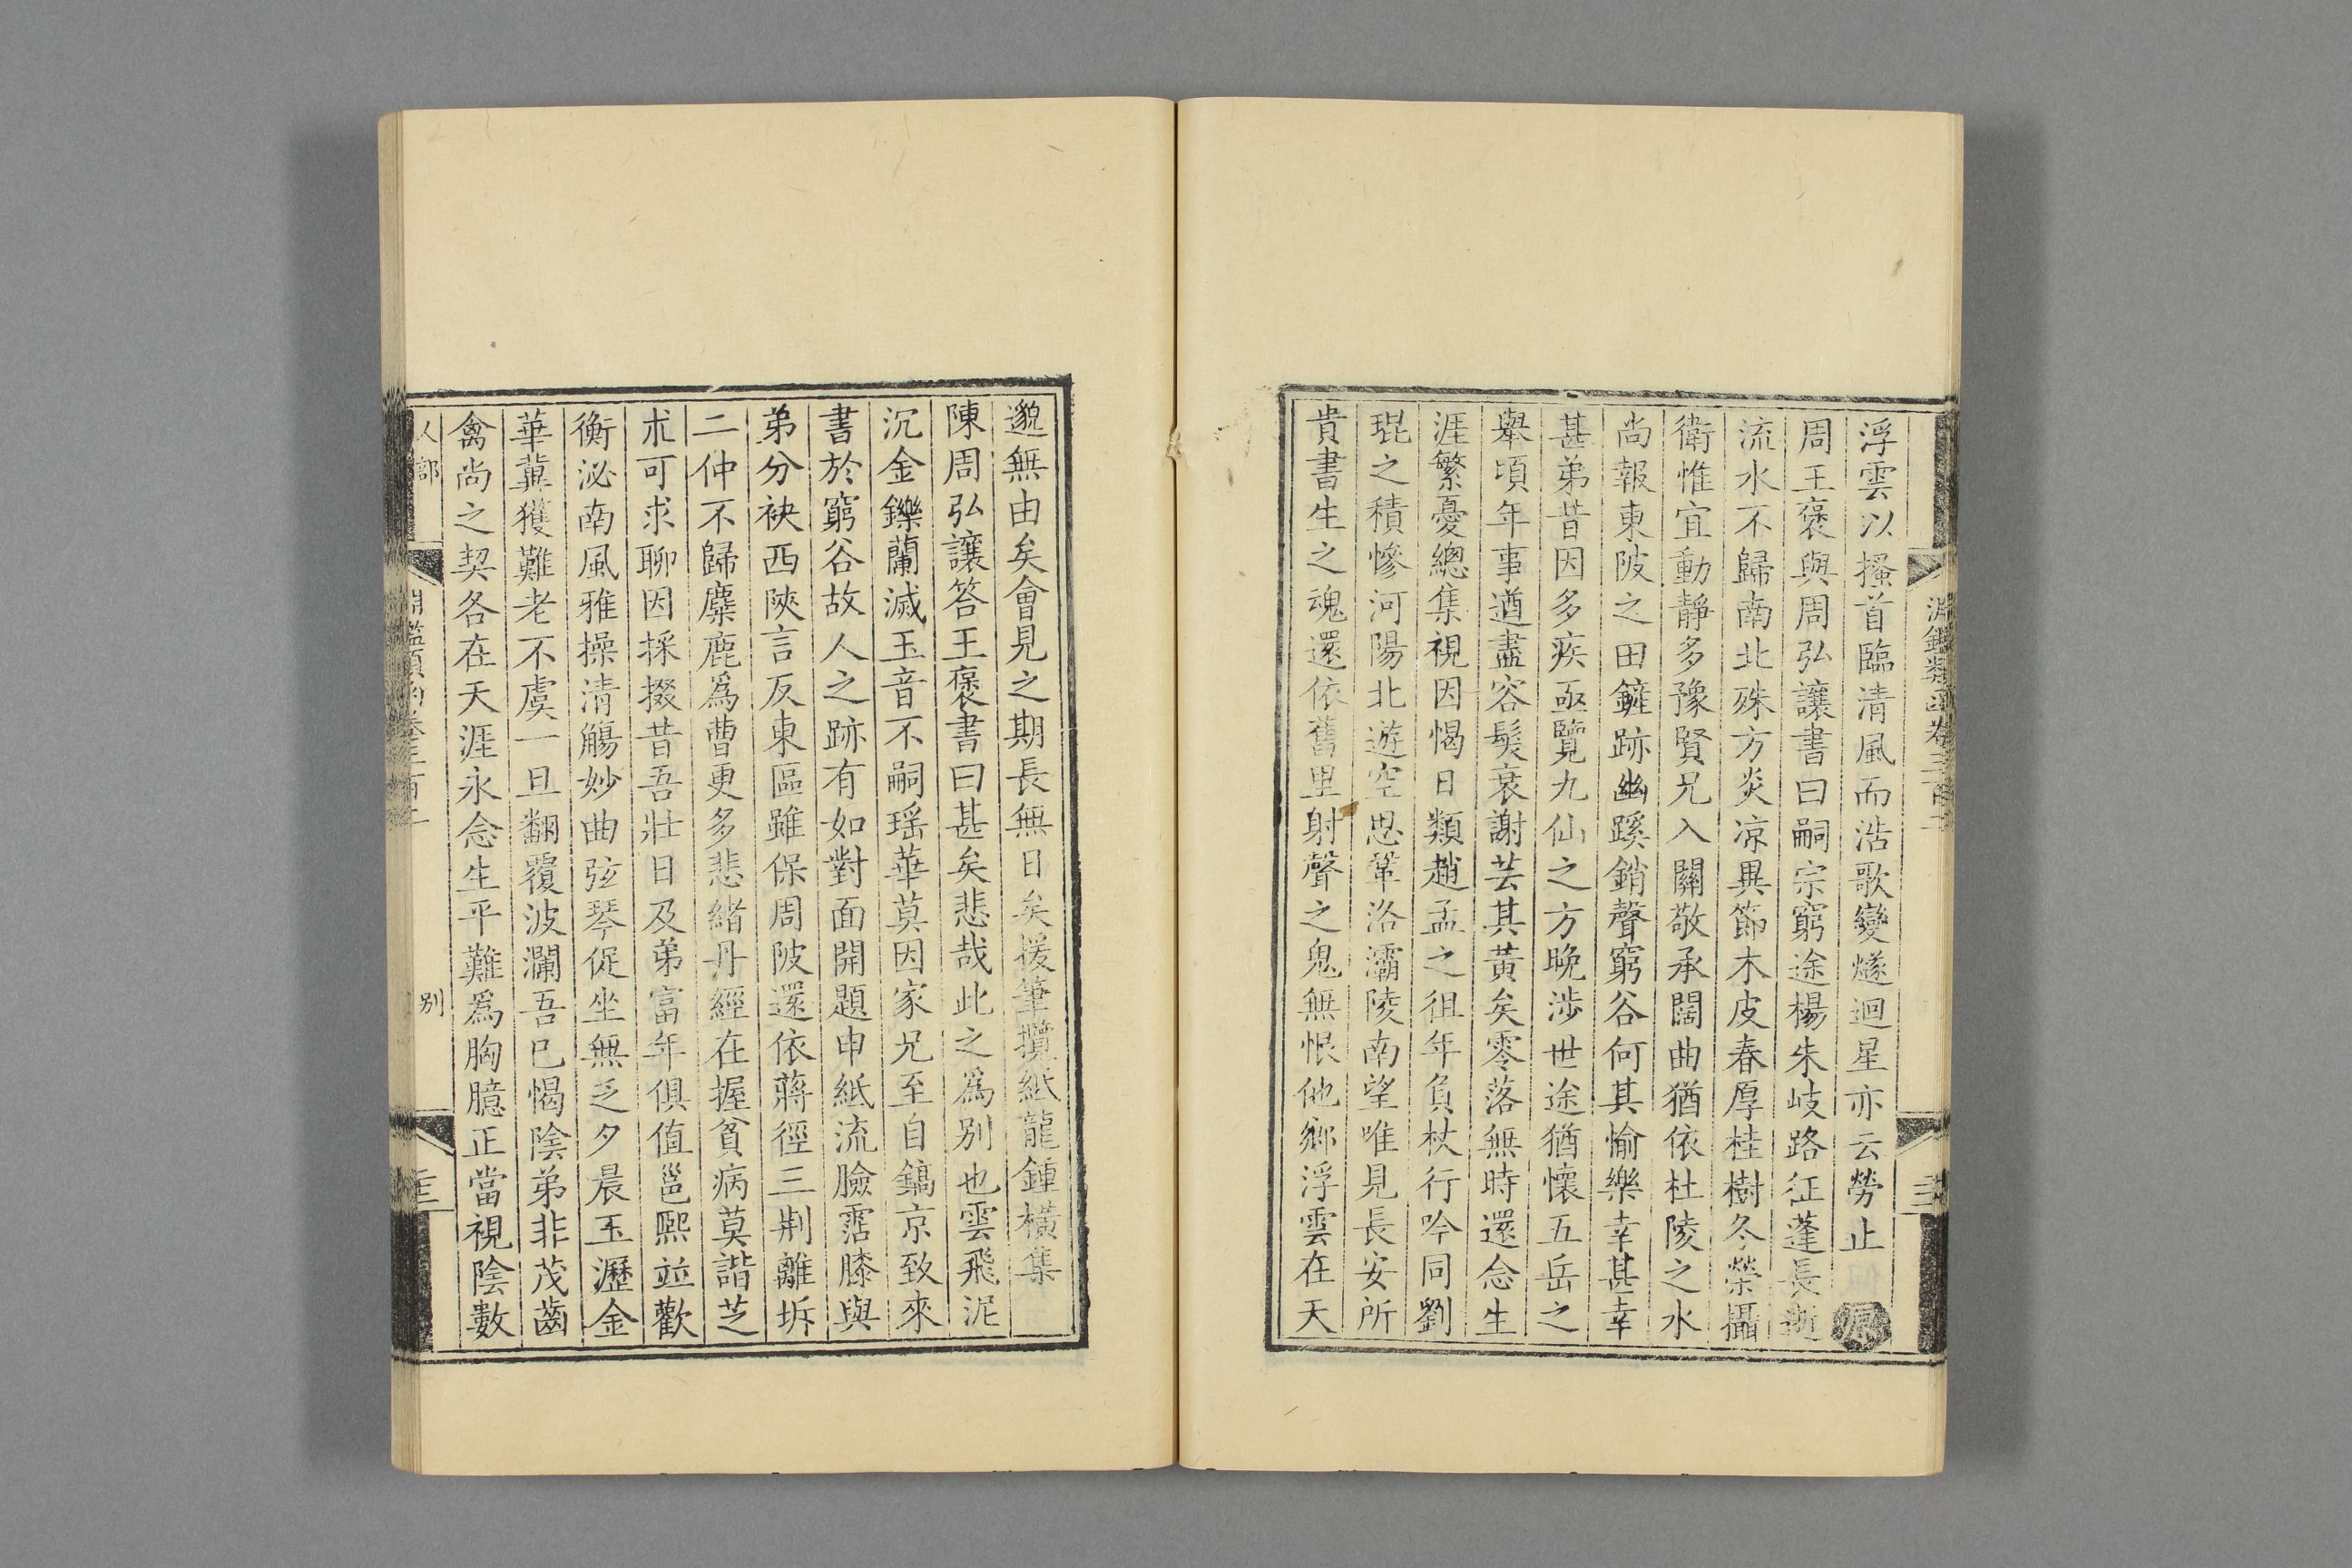 浮雲以搔首臨清風而浩歌變燧迴星亦云勞止原
周王褒與周弘讓書曰嗣宗窮途楊朱岐路征蓬長逝
流水不歸南北殊方炎凉異節木皮春厚桂樹冬榮攝
衛惟宜動靜多豫賢兄入關敬承闊曲猶依杜陵之水
尚報東陂之田鏟跡幽蹊銷聲窮谷何其愉樂幸甚幸
甚弟昔因多疾亟覽九仙之方晚涉世途猶懷五岳之
舉頃年事遒盡容髮衰謝芸其黃矣零落無時還念生
涯繁憂總集視因愒日類趙孟之徂年負杖行吟同劉
琨之積慘河陽北遊空思鞏洛灞陵南望唯見長安所
貴書生之魂還依舊里射聲之鬼無恨他鄉浮雲在天
邈無由矣會見之期長無日矣援筆攬紙龍鍾橫集
陳周弘讓答王褒書曰甚矣悲哉此之爲別也雲飛泥
沉金鑠蘭滅玉音不嗣瑶華莫因家兄至自鎬京致來
書於窮谷故人之跡有如對面開題申紙流臉霑膝與
弟分袂西陝言反東區雖保周陂還依蔣徑三荆離坼
二仲不歸麋鹿爲曹更多悲緒丹經在握貧病莫諧芝
朮可求聊因採掇昔吾壯日及弟富年俱值邕熙並歡
衡泌南風雅操清觴妙曲弦琴促坐無乏夕晨玉瀝金
華冀獲難老不虞一旦翻覆波瀾吾已愒陰弟非茂齒
禽尚之契各在天涯永念生平難爲胸臆正當視陰數
人部
別